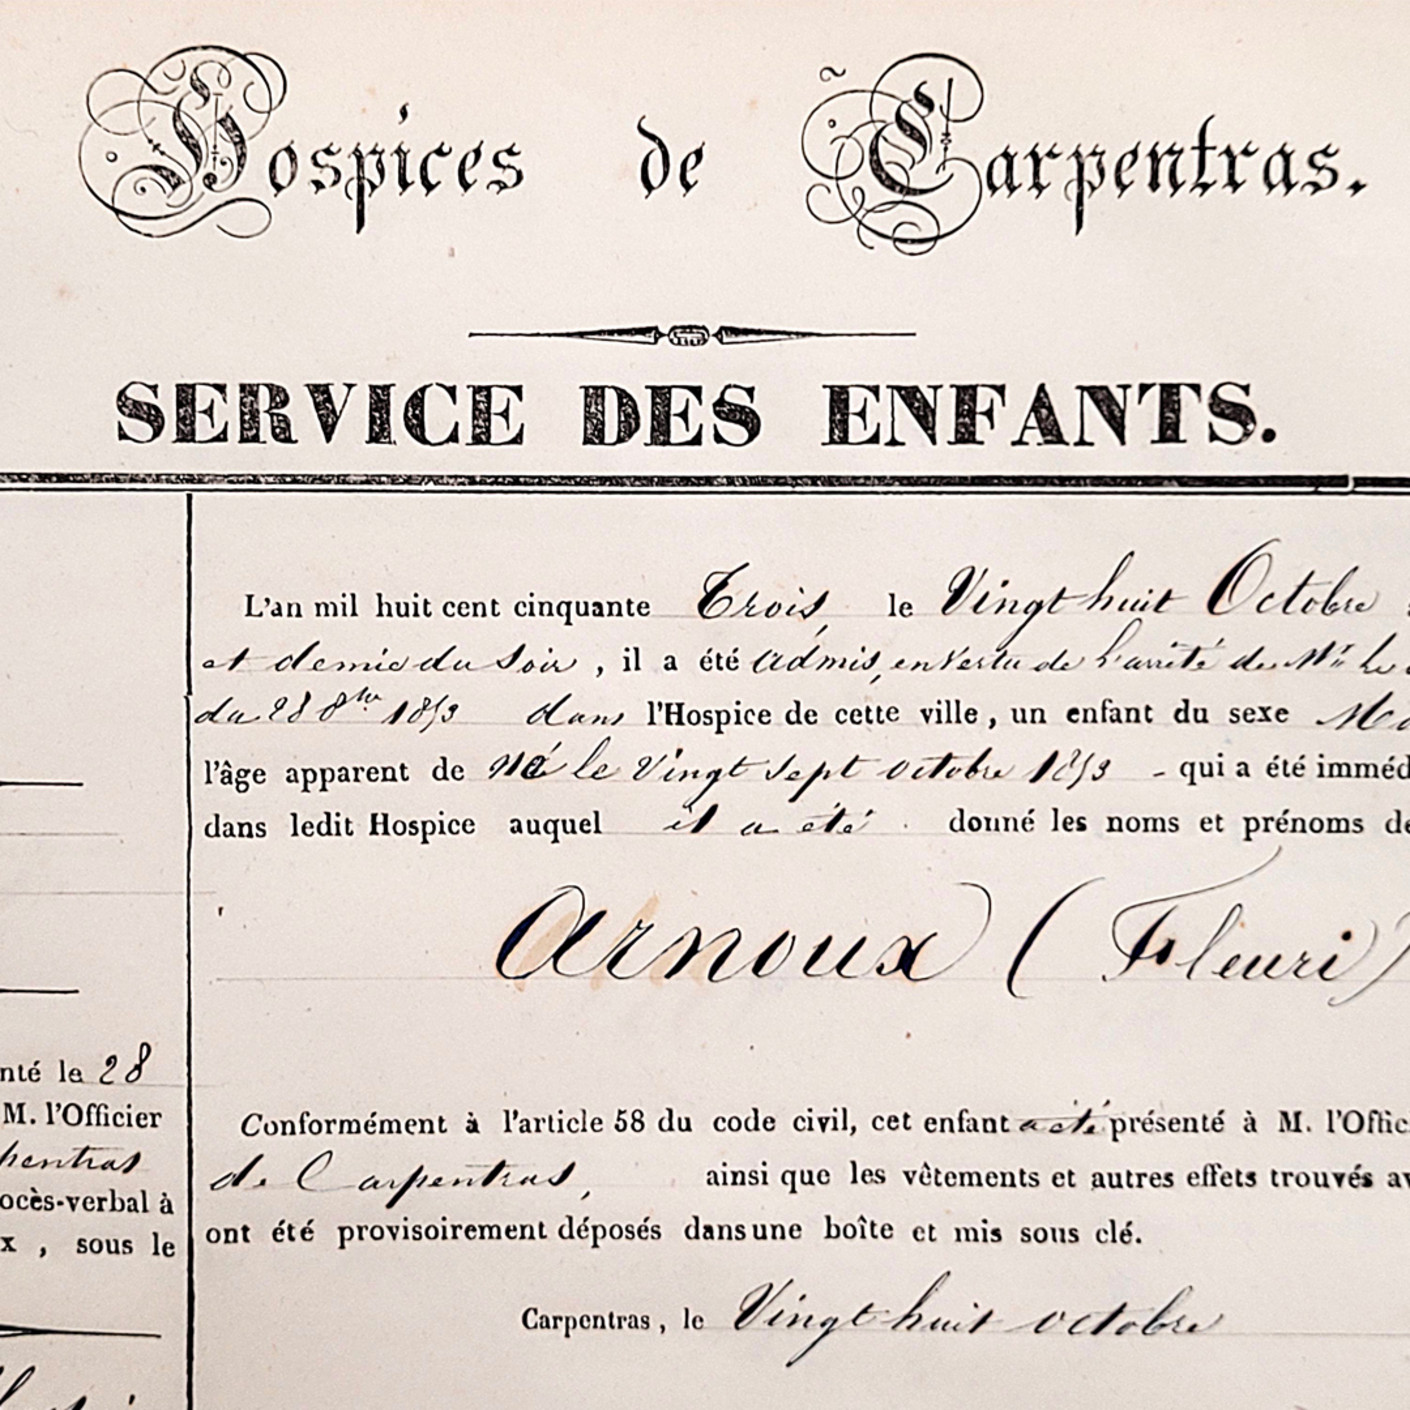 Hospices de Carpentras.
SERVICE DES ENFANTS.
L'an mil huit cent cinquante Trois, le Vingt huit Octobre
et demie du Soir, il a été admis, en vertu de l'arrêté de Mr le
du 28 8bre 1853 dans l'Hospice de cette ville, un enfant du sexe Ma
l'âge apparent de né le Vingt sept octobre 1853 - qui a été imméd
dans ledit Hospice auquel il a été donné les noms et prénoms de
Arnoux (Fleuri)
nté le 28
M. l'Officier
pentras
ocès-verbal à
x, sous le
Conformément à l'article 58 du code civil, cet enfant a été présenté à M. l'Offic
de Carpentras, ainsi que les vêtements et autres effets trouvés av
ont été provisoirement déposés dans une boîte et mis sous clé.
Carpentras, le Vingt huit octobre